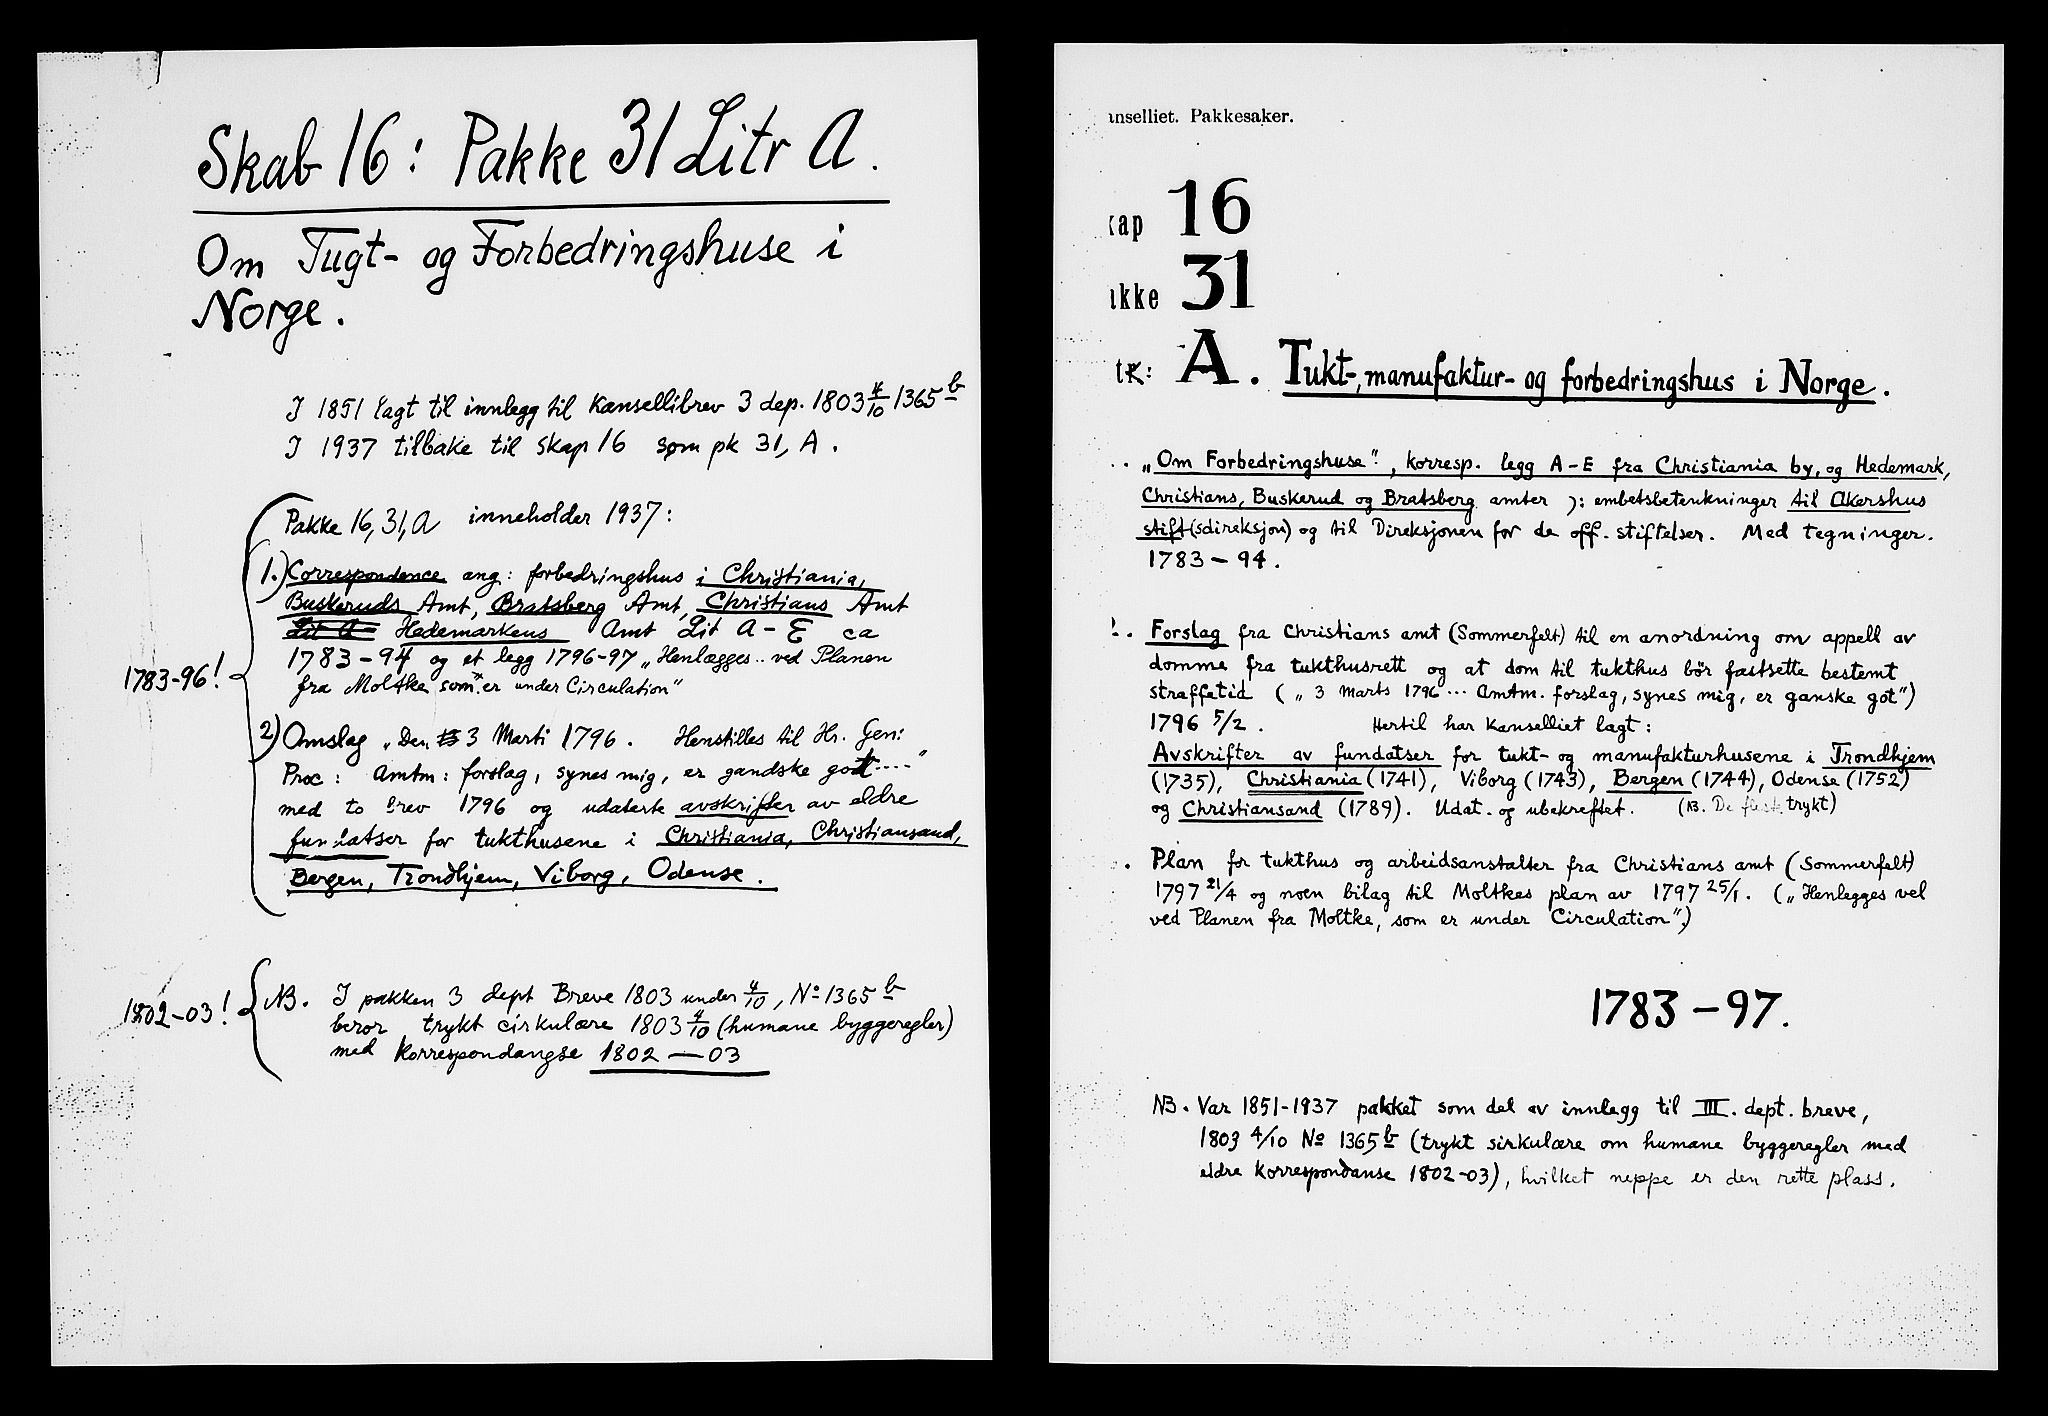 Skab 16: Pakke 31 Litr A.
Om Tugt- og Forbedringshuse i
Norge.
I 1851 lagt til innlegg til Kansellibrev 3 dep. 1803 4/10 1365 b
I 1937 tilbake til skap 16 som pk 31, A.
Pakke 16, 31, A inneholder 1937:
1.) Correspondence ang: forbedringshus i Christiania,
Buskeruds Amt, Bratsberg Amt, Christians Amt
Lit A Hedemarkens Amt Lit A-E ca
1783-94 og et legg 1796-97 „Henlægges .. ved Planen
1783-96!
fra Moltke som er under Circulation"
2) Omslag „Den 3 Marti 1796. Henstilles til Hr. Gen:
Proc: Amtm: forslag, synes mig, er gandske godt ...."
med to brev 1796 og udaterte avskrifter av eldre
fundatser for tukthusene i Christiania, Christiansand,
Bergen, Trondhjem, Viborg, Odense.
1802-03! NB. I pakken 3 dept Breve 1803 under 4/10, No 1365 b
beror trykt cirkulære 1803 4/10 (humane byggeregler)
med Korrespondangse 1802-03
anselliet. Pakkesaker.
kap 16
akke 31
tr: A. Tukt-, manufaktur- og forbedringshus i Norge.
.. „Om Forbedringshuse", korresp. legg A-E fra Christiania by, og Hedemark,
Christians, Buskerud og Bratsberg amter ): embetsbetenkninger til Akershus
stift(sdireksjon) og til Direksjonen for de off. stiftelser. Med tegninger.
1783-94.
2. Forslag fra Christians amt (Sommerfelt) til en anordning om appell av
domme fra tukthusrett og at dom til tukthus bör fastsette bestemt
straffetid („3 Marts 1796 ... Amtm. forslag, synes mig, er ganske got")
1796 5/2. Hertil har Kanselliet lagt:
Avskrifter av fundatser for tukt- og manufakturhusene i Trondhjem
(1735), Christiania (1741), Viborg (1743), Bergen (1744), Odense (1752)
og Christiansand (1789). Udat. og ubekreftet. (NB. De fleste trykt)
. Plan for tukthus og arbeidsanstalter fra Christians amt (Sommerfelt)
1797 21/4 og noen bilag til Moltkes plan av 1797 25/1. („Henlegges vel
ved Planen fra Moltke, som er under Circulation".)
1783-97.
NB. Var 1851-1937 pakket som del av innlegg til III. dept. breve,
1803 4/10 No 1365 b (trykt sirkulære om humane byggeregler med
eldre Korrespondanse 1802-03), hvilket neppe er den rette plass.